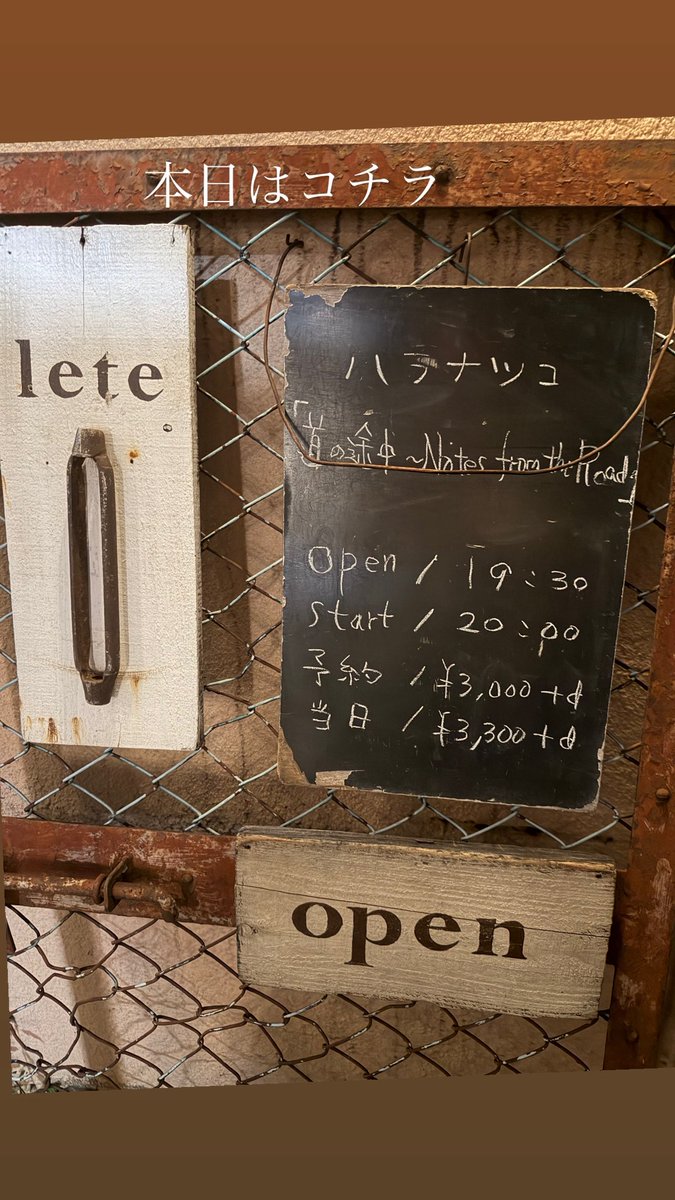 本日はコチラ
lete
ハラナツコ
「道の途中~Notes from the Road」
Open / 19:30
Start / 20:00
予約 / ¥3,000+d
当日 / ¥3,300+d
open